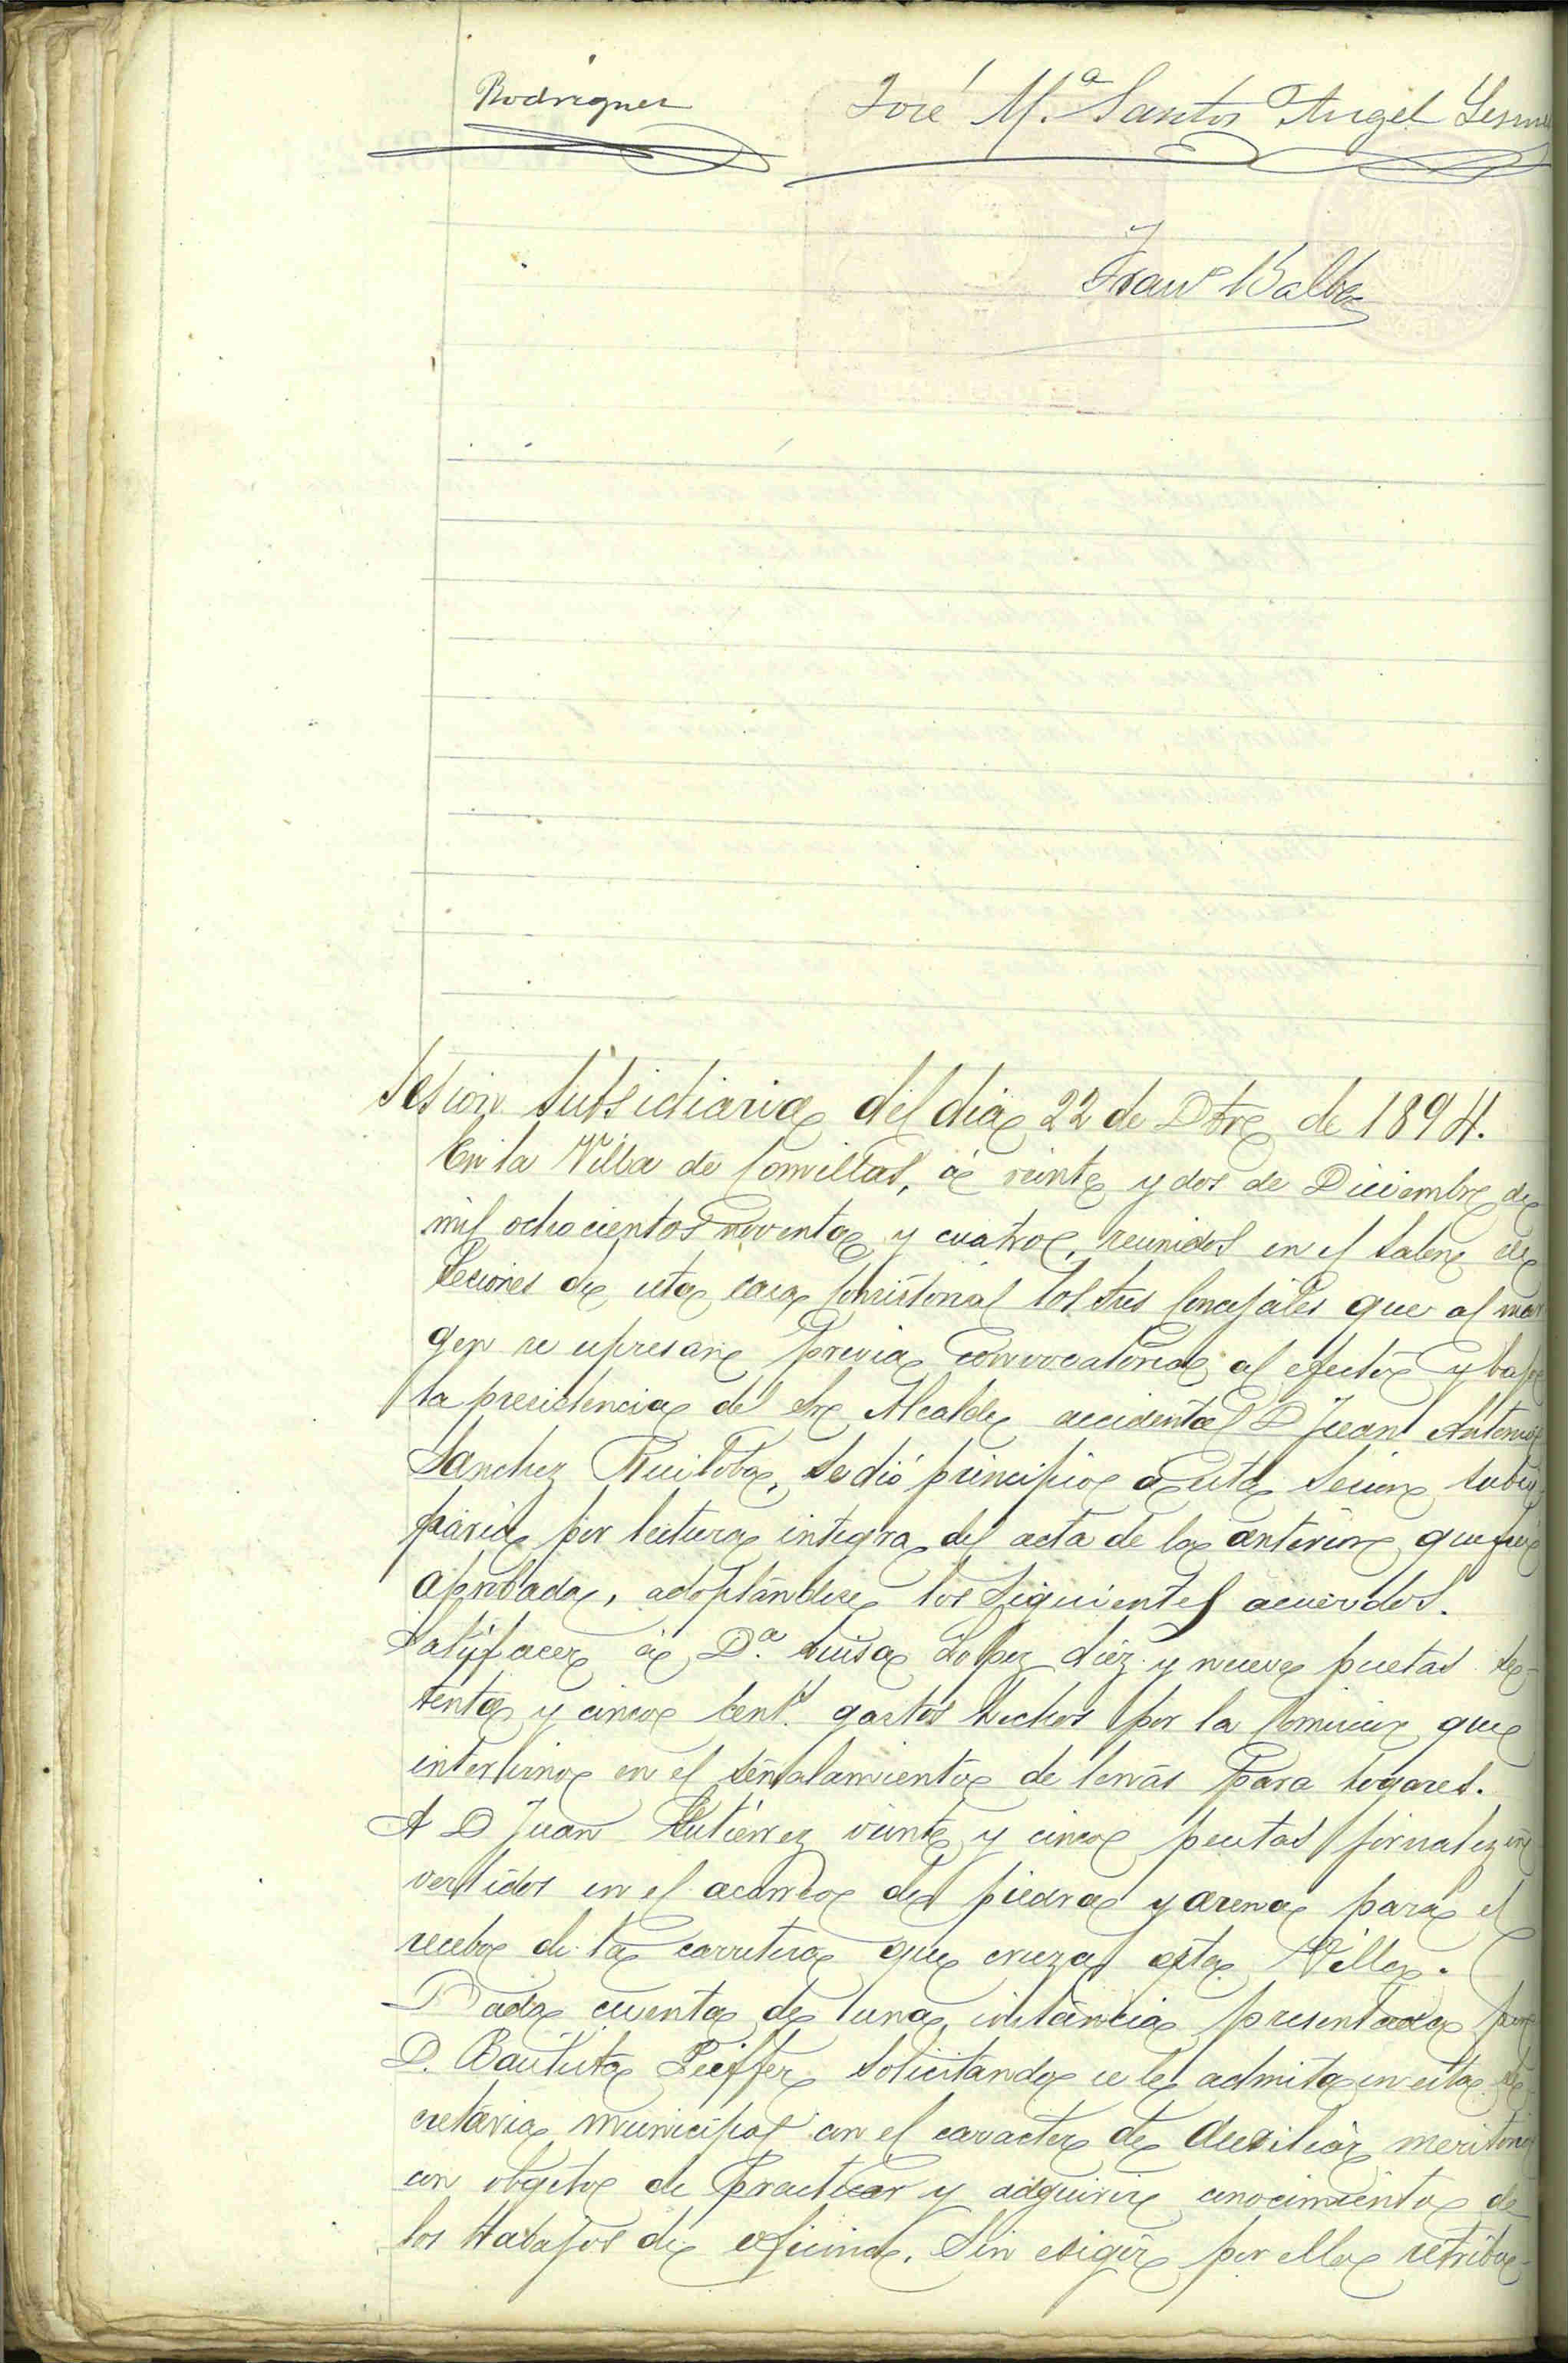 Rodriguez
José M.ª Santos Angel Lesm
Franco Balbas
Sesion Subsidiaria del dia 22 de Dbre de 1894.
En la Villa de Comillas, á veinte y dos de Diciembre de
mil ochocientos noventa y cuatro, reunidos en el Salon de
Seciones de esta casa Consistorial los Sres Concejales que al mar
gen se espresan previa convocatoria al efecto y bajo
la presidencia del Sr Alcalde accidental D Juan Antonio
Sanchez Ruiloba, se dió principio a esta Sesion subsi
diaria por lectura integra del acta de la anterior que fué
aprobada, adoptándose los Siguientes acuerdos.
Satisfacer á D.ª Luisa Lopez diez y nueve pesetas se-
tenta y cinco cents. gastos hechos por la Comision que
intervino en el señalamiento de leñas para hogares.
A D Juan Gutiérrez veinte y cinco pesetas jornales in
vertidos en el acarreo de piedra y arena para el
recebo de la carretera que cruza esta Villa.
Dada cuenta de una instancia presentada por
D. Bautista Peiffer solicitando se le admita en esta Se
cretaria municipal con el caracter de Auxiliar meritorio
con objeto de practicar y adquirir conocimientos de
los trabajos de oficina, Sin exigir por ello retribu-